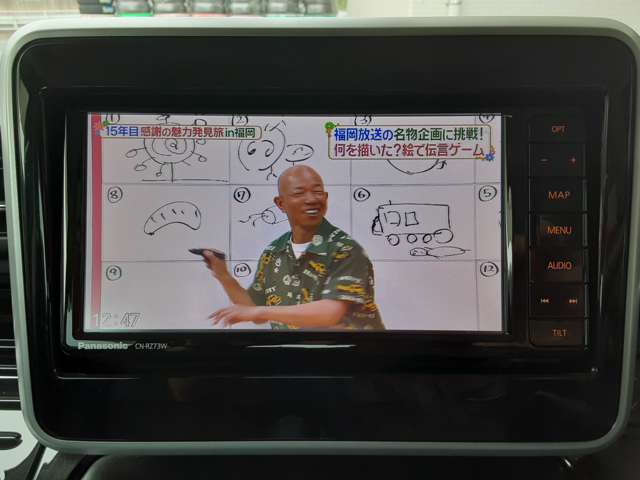 (1)
(2)
(3)
15年目 感謝の魅力発見旅in福岡
福岡放送の名物企画に挑戦!
何を描いた?絵で伝言ゲーム
⑧
⑦
⑥
⑤
⑨
⑩
⑫
12:47
Panasonic CN-RZ73W
OPT
− +
MAP
MENU
AUDIO
TILT